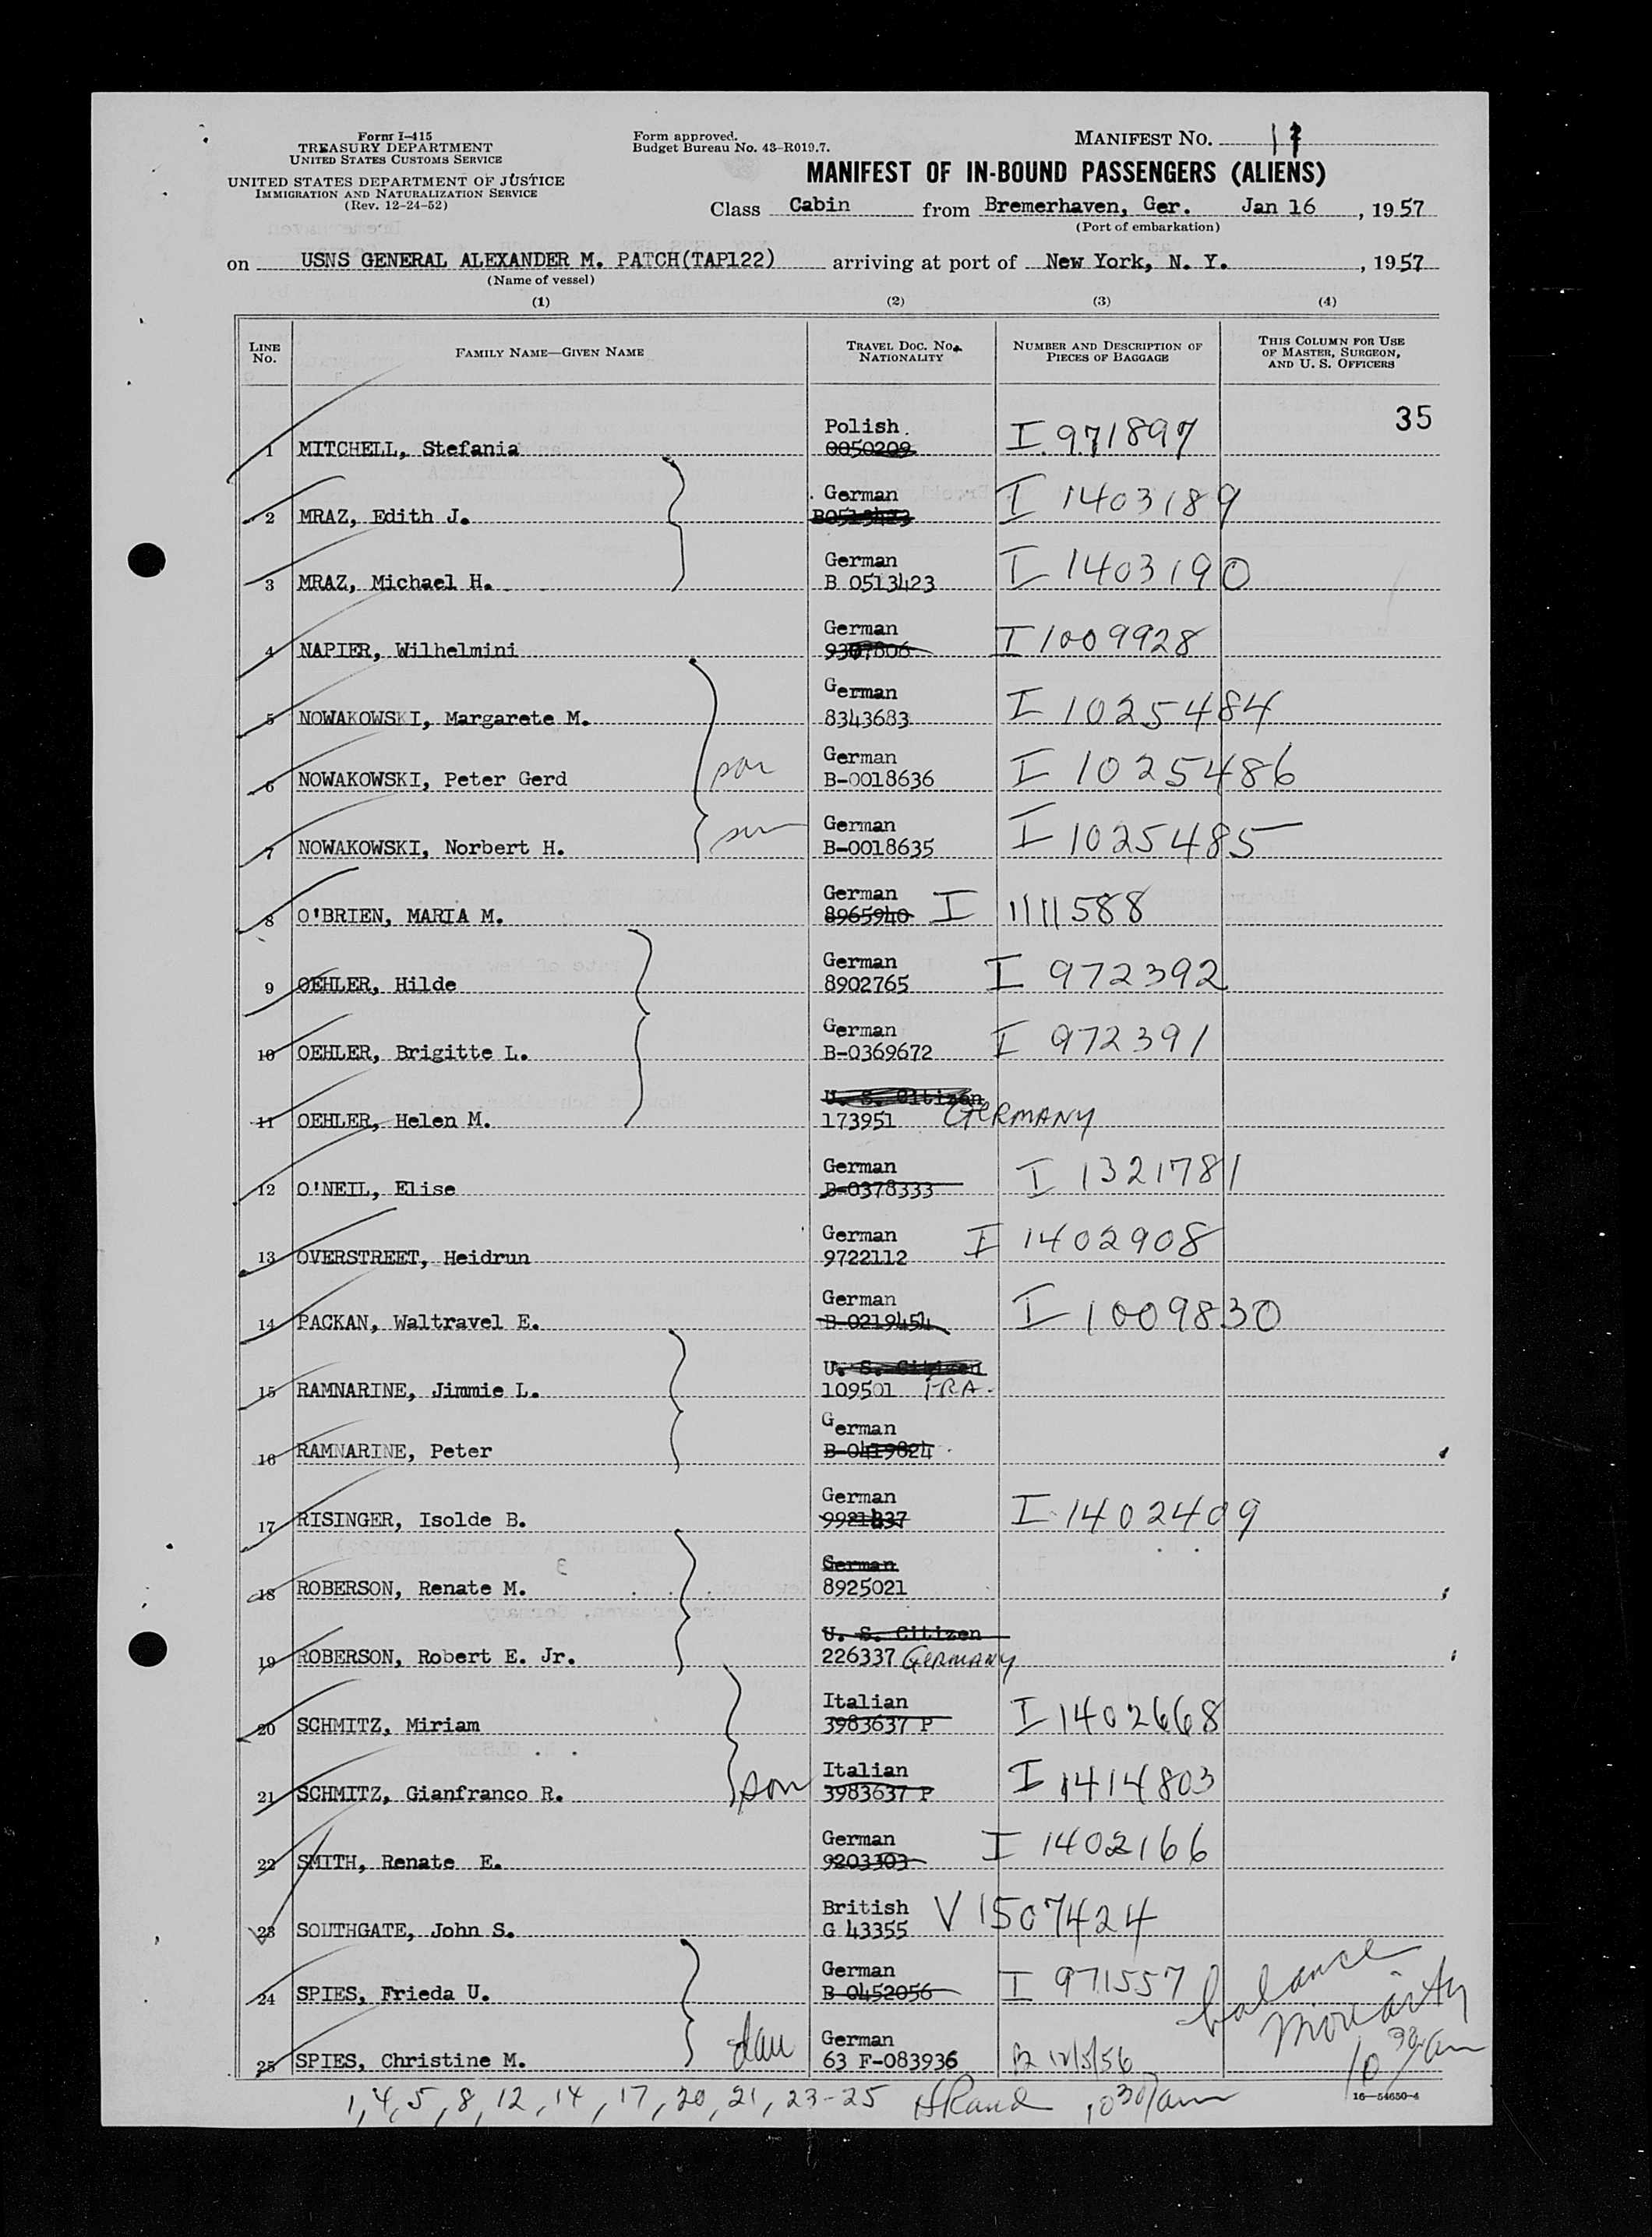 Form I-415
TREASURY DEPARTMENT
UNITED STATES CUSTOMS SERVICE
UNITED STATES DEPARTMENT OF JUSTICE
IMMIGRATION AND NATURALIZATION SERVICE
(Rev. 12-24-52)
Form approved.
Budget Bureau No. 43-R019.7.
MANIFEST NO.
MANIFEST OF IN-BOUND PASSENGERS (ALIENS)
Class Cabin from Bremerhaven, Ger. Jan 16, 1957
(Port of embarkation)
on USNS GENERAL ALEXANDER M. PATCH(TAP122) arriving at port of New York, N. Y., 1957
(Name of vessel)
(1) (2) (3) (4)
LINE NO. FAMILY NAME—GIVEN NAME TRAVEL DOC. NO. NATIONALITY NUMBER AND DESCRIPTION OF PIECES OF BAGGAGE THIS COLUMN FOR USE OF MASTER, SURGEON, AND U. S. OFFICERS
35
Polish
1 MITCHELL, Stefania 0050209 I 971897
German
2 MRAZ, Edith J. B0513423 I 1403189
German
3 MRAZ, Michael H. B 0513423 I 1403190
German
4 NAPIER, Wilhelmini 9307806 I 1009928
German
5 NOWAKOWSKI, Margarete M. 8343683 I 1025484
German
6 NOWAKOWSKI, Peter Gerd son B-0018636 I 1025486
German
7 NOWAKOWSKI, Norbert H. son B-0018635 I 1025485
German
8 O'BRIEN, MARIA M. 8965940 I 1111588
German
9 OEHLER, Hilde 8902765 I 972392
German
10 OEHLER, Brigitte L. B-0369672 I 972391
U. S. Citizen
11 OEHLER, Helen M. 173951 GERMANY
German
12 O'NEIL, Elise B-0378333 I 1321781
German
13 OVERSTREET, Heidrun 9722112 I 1402908
German
14 PACKAN, Waltravel E. B-0219454 I 1009830
U. S. Citizen
15 RAMNARINE, Jimmie L. 109501 FRA.
German
16 RAMNARINE, Peter B-0419824
German
17 RISINGER, Isolde B. 9921837 I 1402409
German
18 ROBERSON, Renate M. 8925021
U. S. Citizen
19 ROBERSON, Robert E. Jr. 226337 GERMANY
Italian
20 SCHMITZ, Miriam 3983637 P I 1402668
Italian
21 SCHMITZ, Gianfranco R. son 3983637 P I 1414803
German
22 SMITH, Renate E. 9203303 I 1402166
British
23 SOUTHGATE, John S. G 43355 V 1507424
German
24 SPIES, Frieda U. B-0452056 I 971557 balance
Moriarty
German
25 SPIES, Christine M. dau 63 F-083936 12/5/56 10 30/am
1, 4, 5, 8, 12, 14, 17, 20, 21, 23-25 10 30/am
16—54650-4